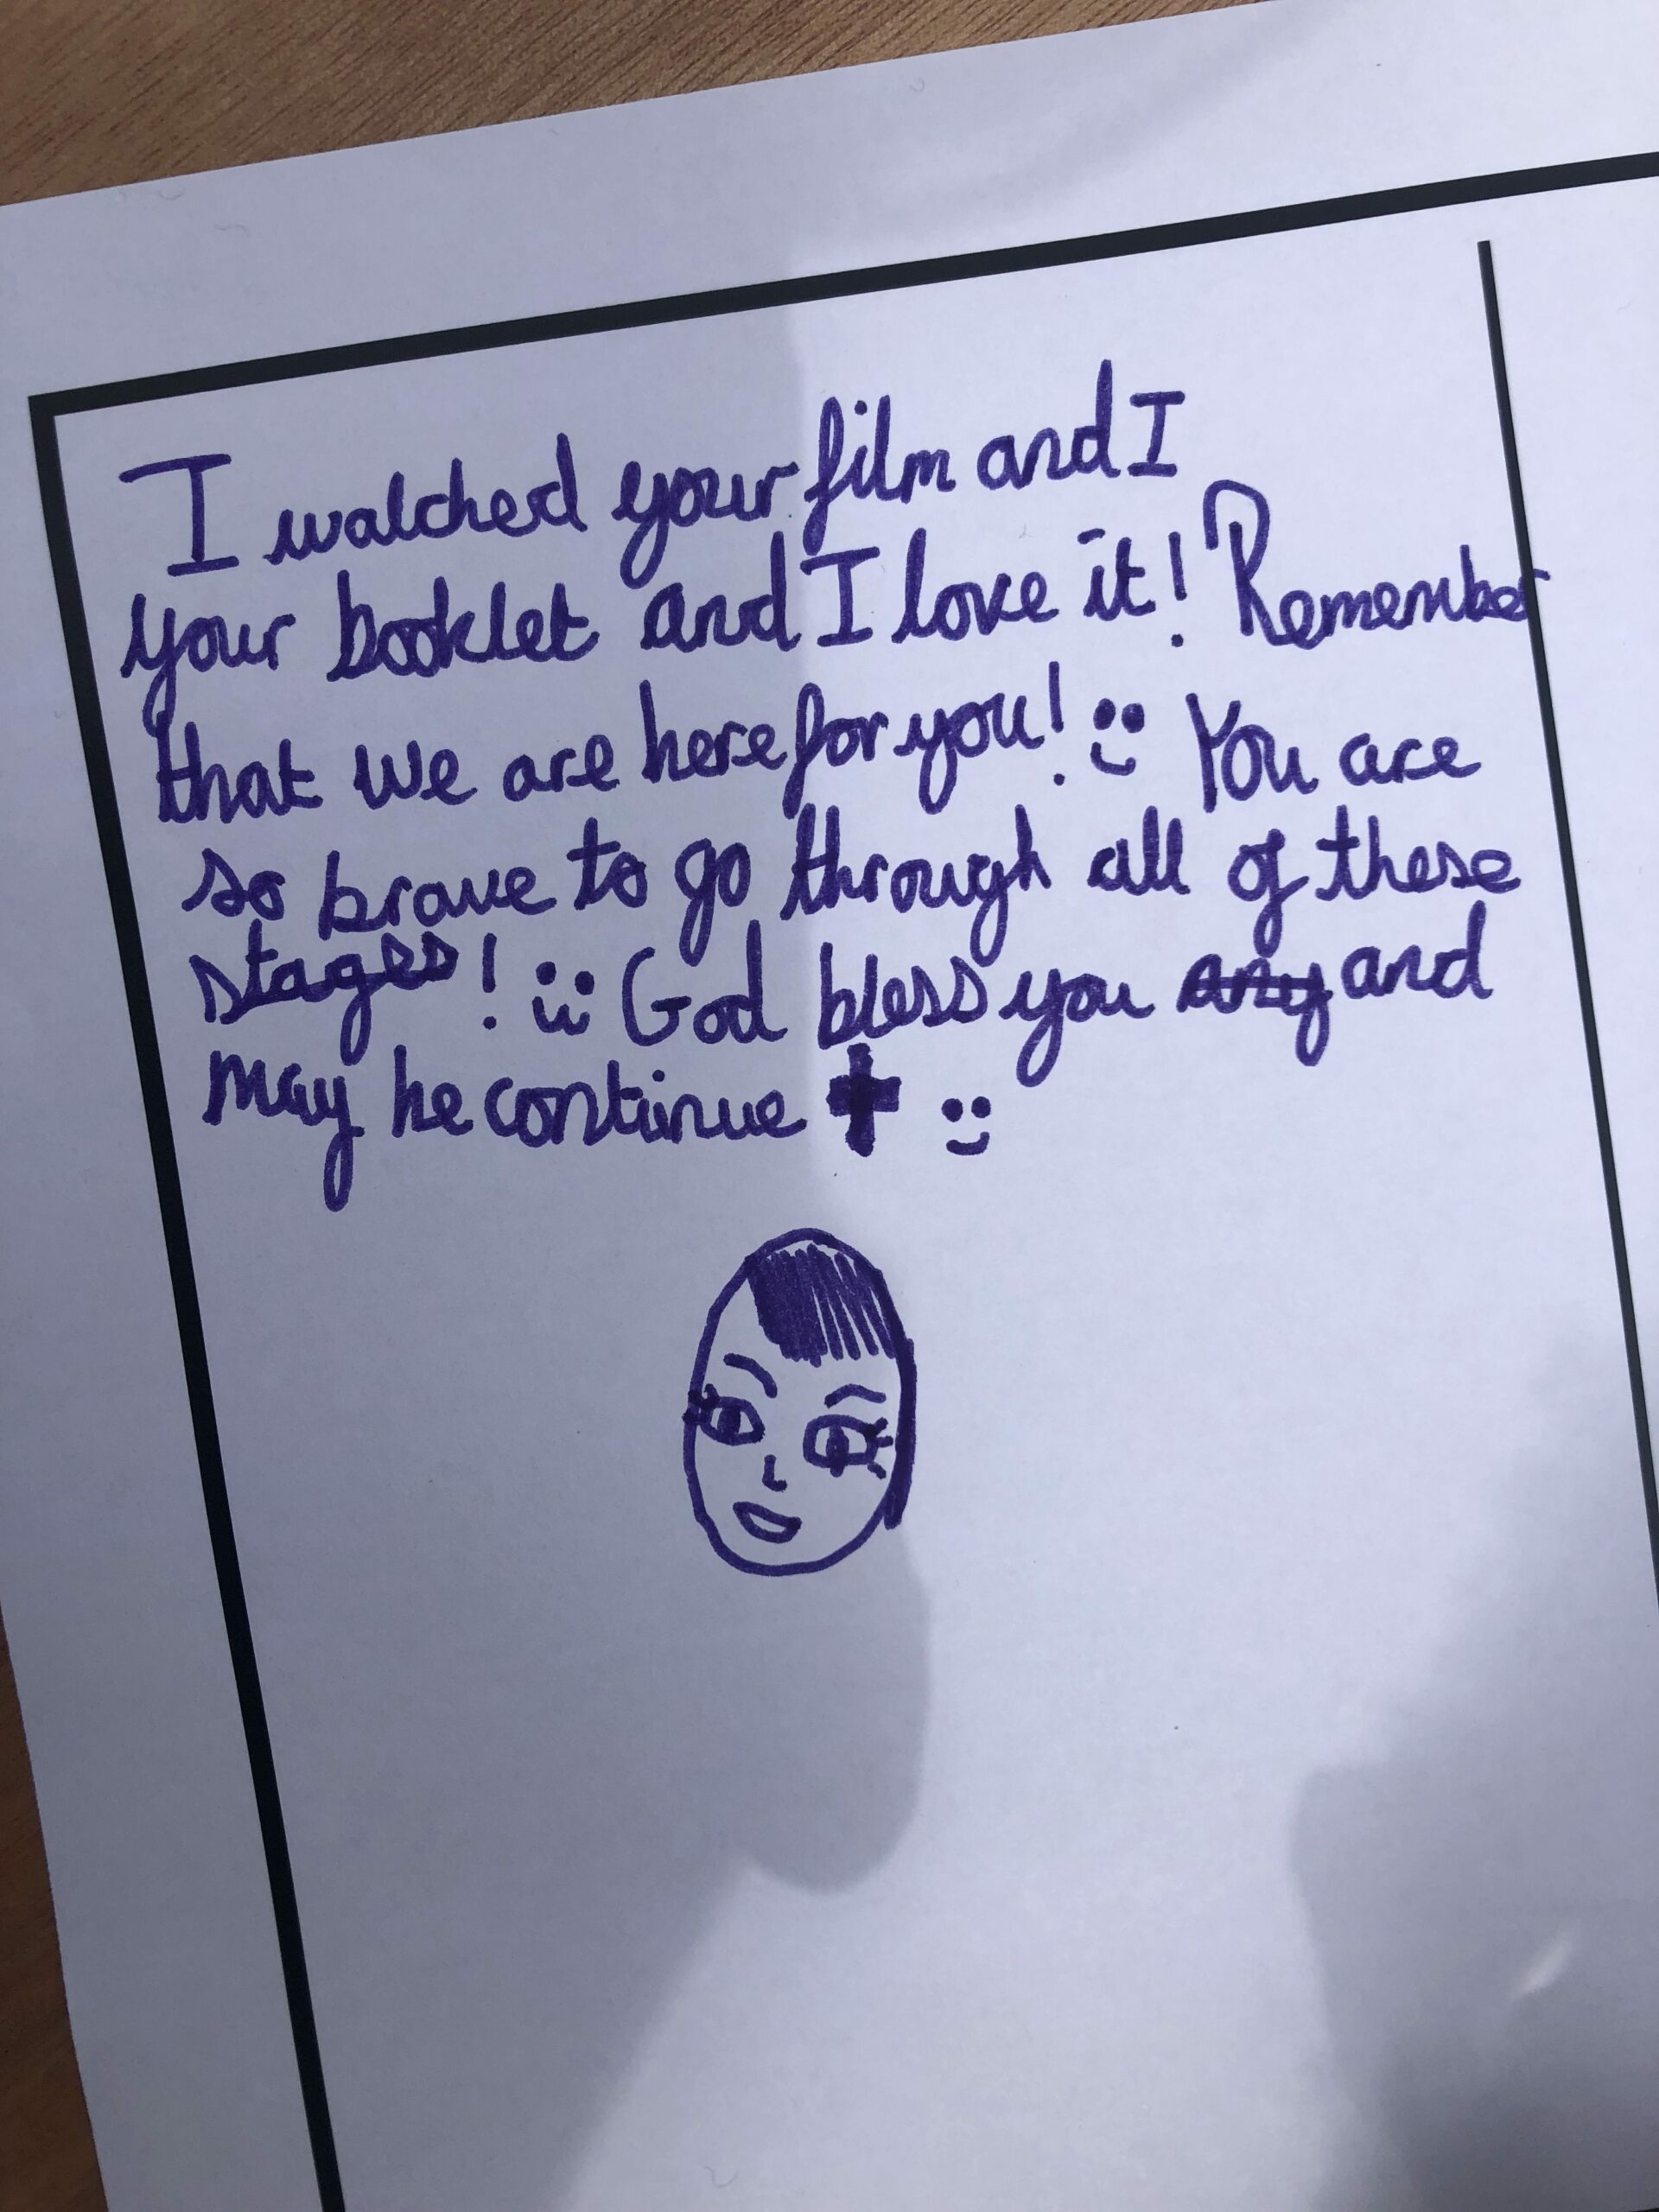 I watched your film and I
your booklet and I love it! Remember
that we are here for you! :) You are
so brave to go through all of these
stages! :) God bless you any and
may he continue ✝ :)